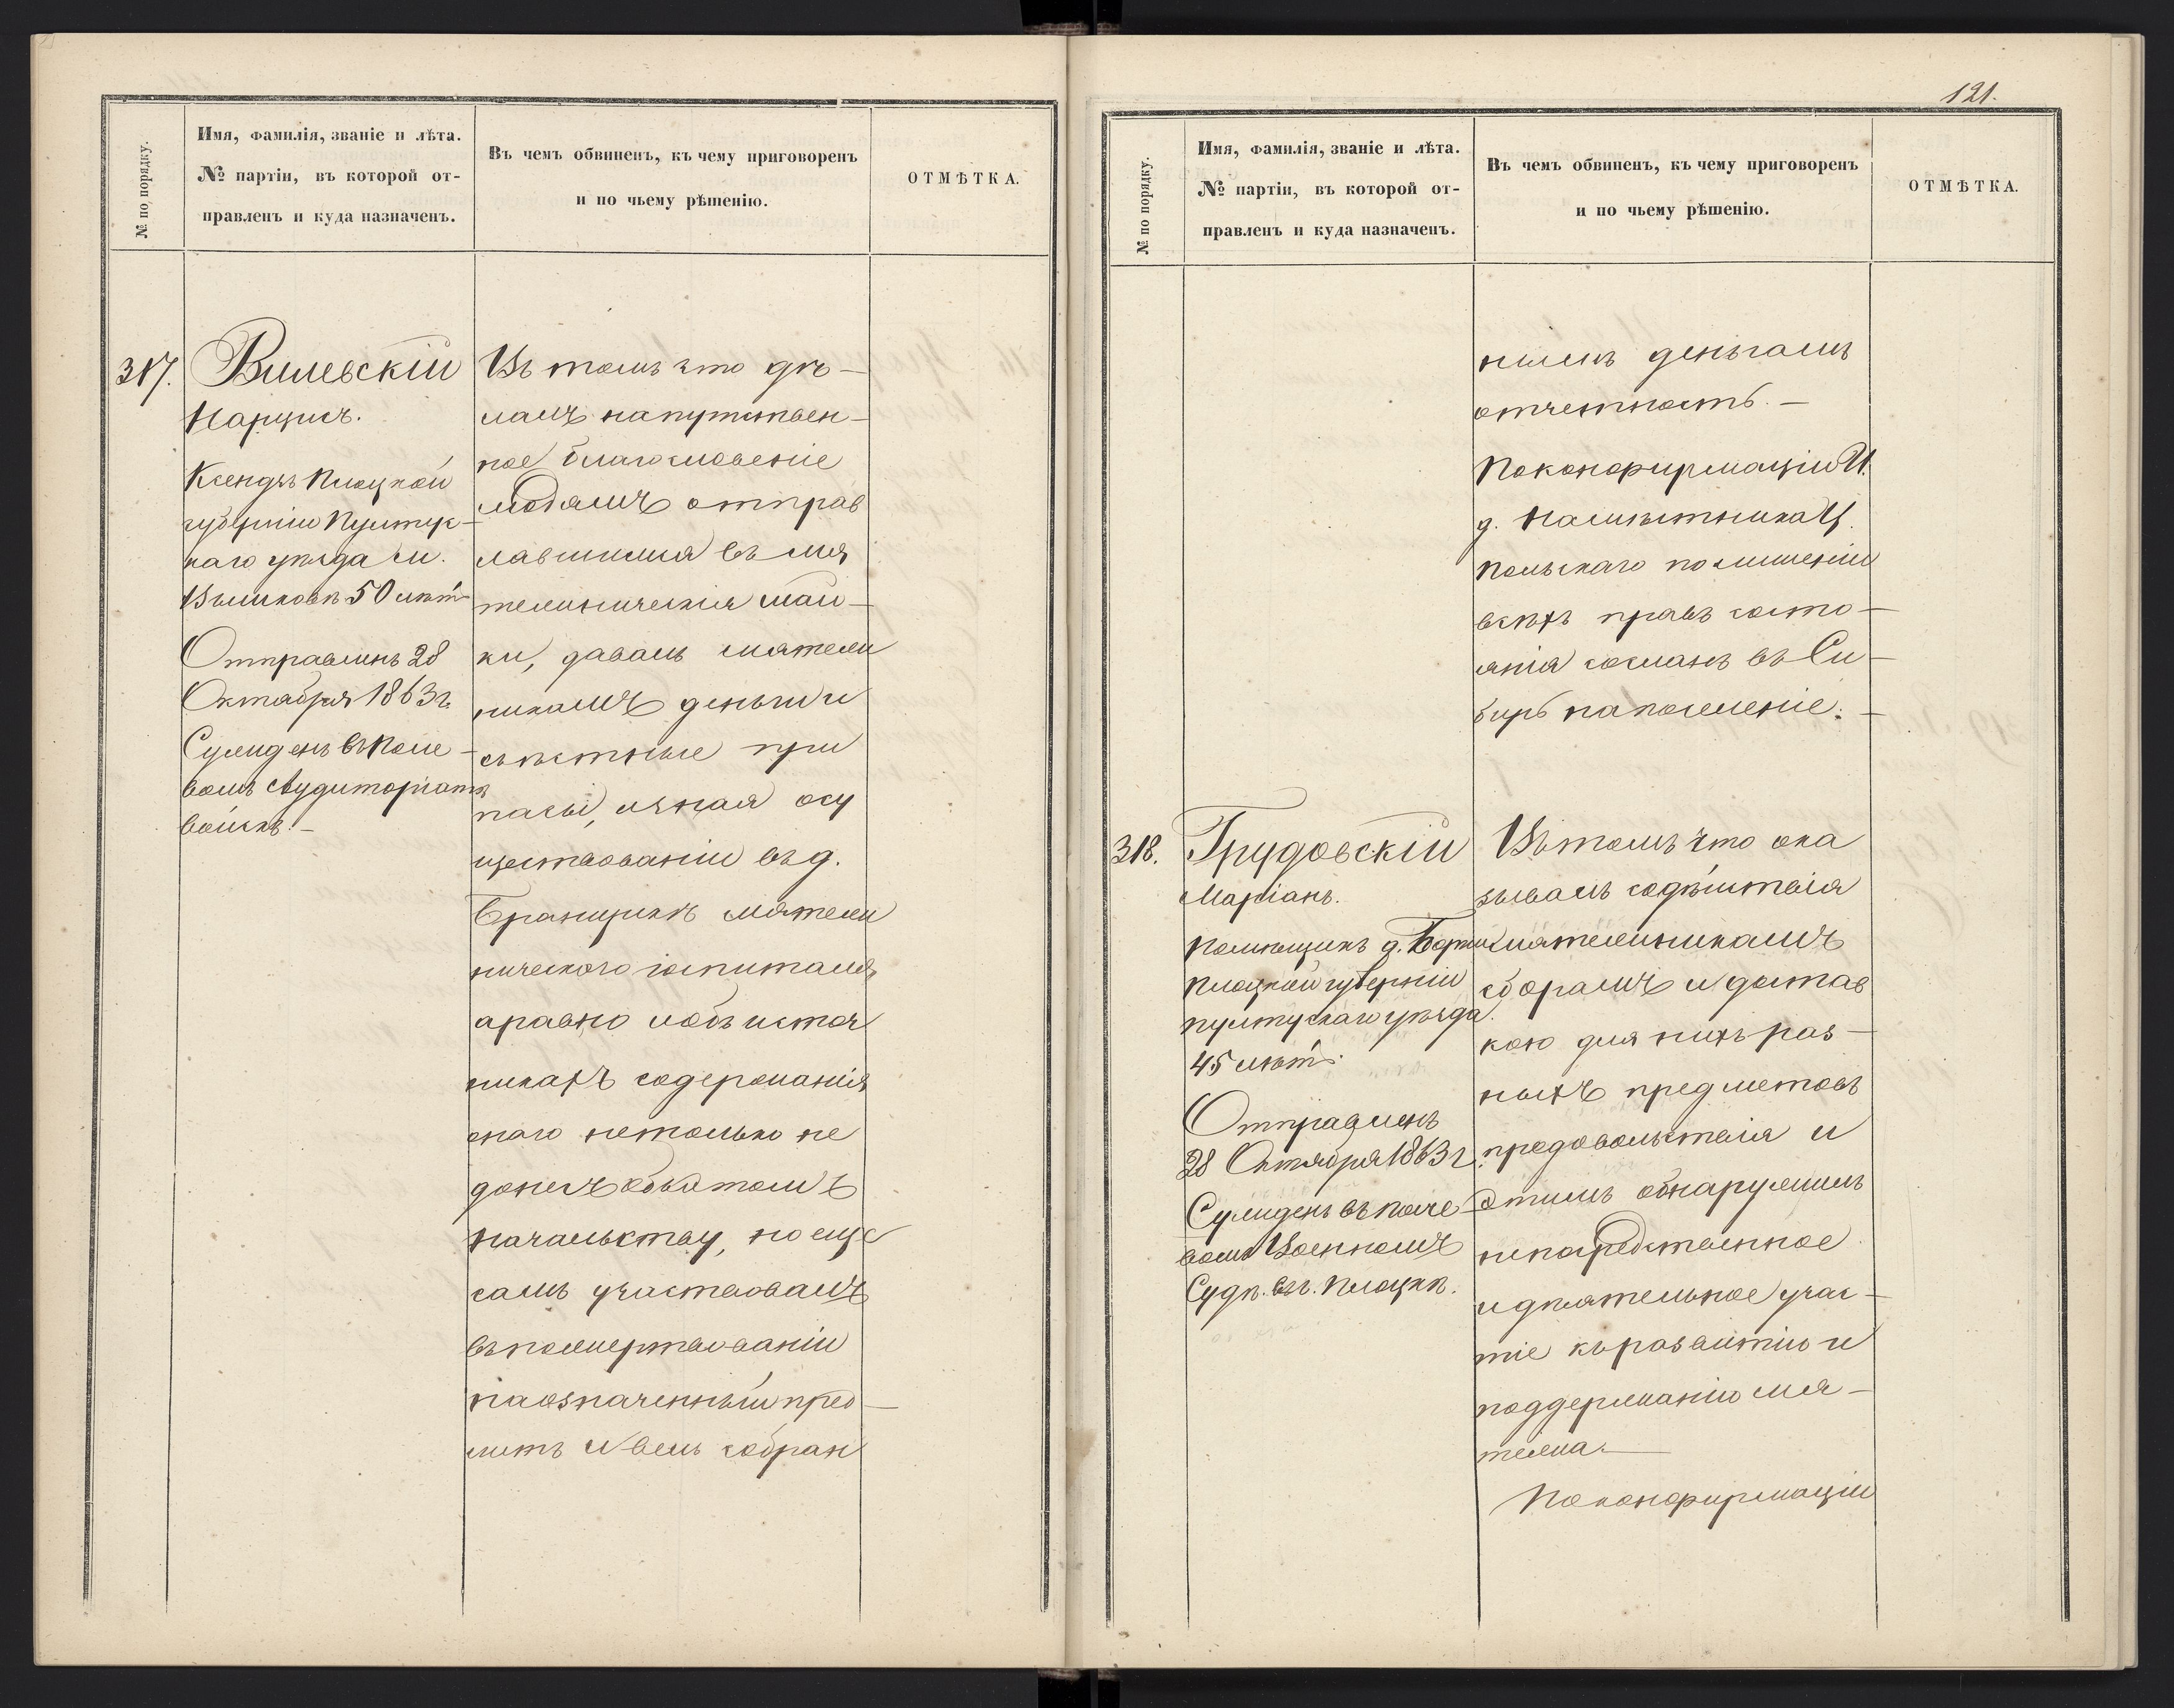 № по порядку.
Имя, фамилія, званіе и лѣта.
№ партіи, въ которой от-
правленъ и куда назначенъ.
Въ чемъ обвиненъ, къ чему приговоренъ
и по чьему рѣшенію.
ОТМѢТКА.
317.
Вилевскій
Нарцисъ.
Ксендзъ Плоцкой
губерніи Пултус-
каго уѣзда м.
Вышковъ 50 лѣтъ
Отправленъ 28
Октября 1863 г.
Сужденъ въ Поле-
вомъ Аудиторіатѣ
войскъ. —
Въ томъ что дѣ-
лалъ напутствен-
ное благословеніе
людямъ отправ
лявшимся въ мя
тежническія шай-
ки, давалъ мятеж
никамъ деньги и
съѣстные при
пасы, и зная о су
ществованіи въ д.
Бранщикѣ мятеж
ническаго госпиталя,
а равно и объ источ
никахъ содержанія
онаго не только не
донесъ объ этомъ
начальству, но еще
самъ участвовалъ
въ пожертвованіи
на означенный пред-
метъ и велъ собран
121.
№ по порядку.
Имя, фамилія, званіе и лѣта.
№ партіи, въ которой от-
правленъ и куда назначенъ.
Въ чемъ обвиненъ, къ чему приговоренъ
и по чьему рѣшенію.
ОТМѢТКА.
нымъ деньгамъ
отчетность. —
По конфирмаціи И.
д. Намѣстника Ц.
Польскаго по лишеніи
всѣхъ правъ состо-
янія сосланъ въ Си-
бирь на поселеніе. —
318.
Грудовскій
Маріанъ.
Помѣщикъ д.
Плоцкой губерніи
Пултускаго уѣзда.
45 лѣтъ.
Отправленъ
28 Октября 1863 г.
Сужденъ въ Поле-
вомъ Военномъ
Судѣ. въ г. Плоцкѣ.
Въ томъ что ока
зывалъ содѣйствія
мятежникамъ
сборамъ и достав
кою для нихъ раз-
ныхъ предметовъ
продовольствія и
этимъ обнаружилъ
непосредственное
и дѣятельное учас-
тіе къ развитію и
поддержанію мя-
тежа. —
По конфирмаціи